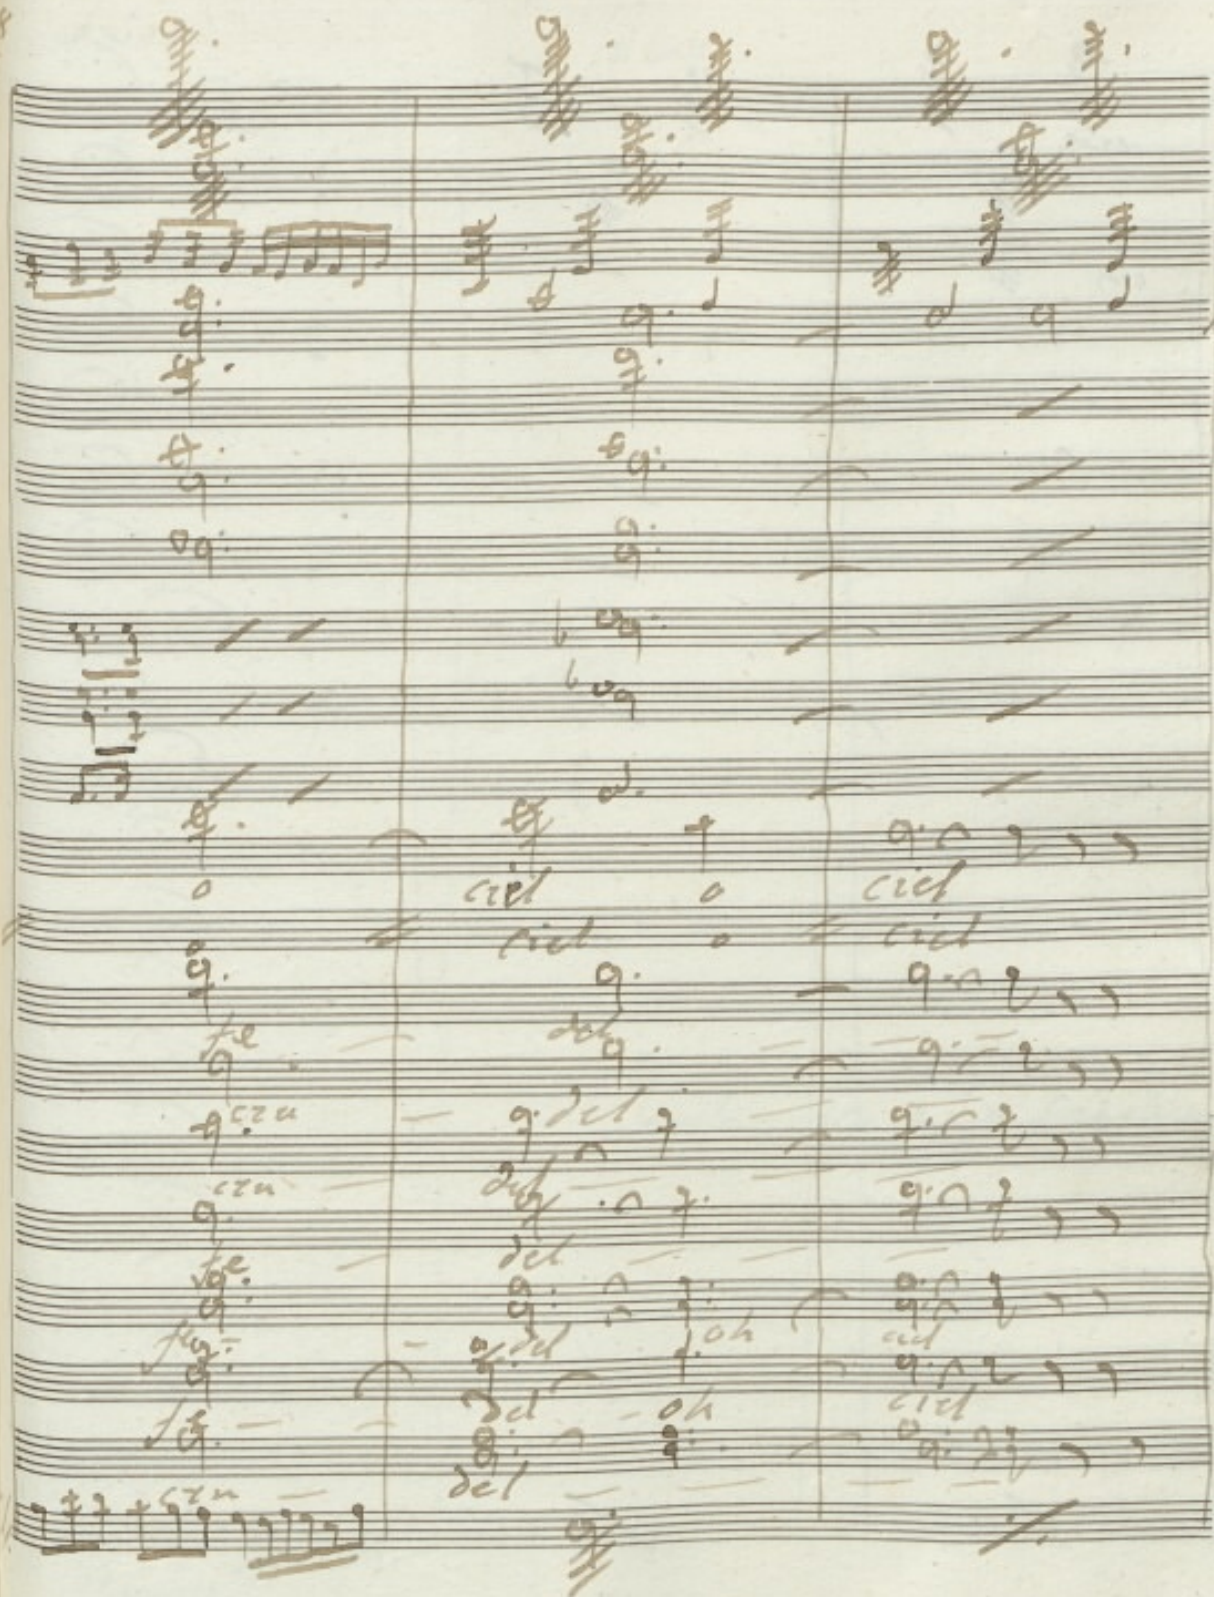 o ciel o ciel
ciel o ciel
fe del
czu del
czu del
fe del
fe del oh ciel
fe del oh ciel
czu del